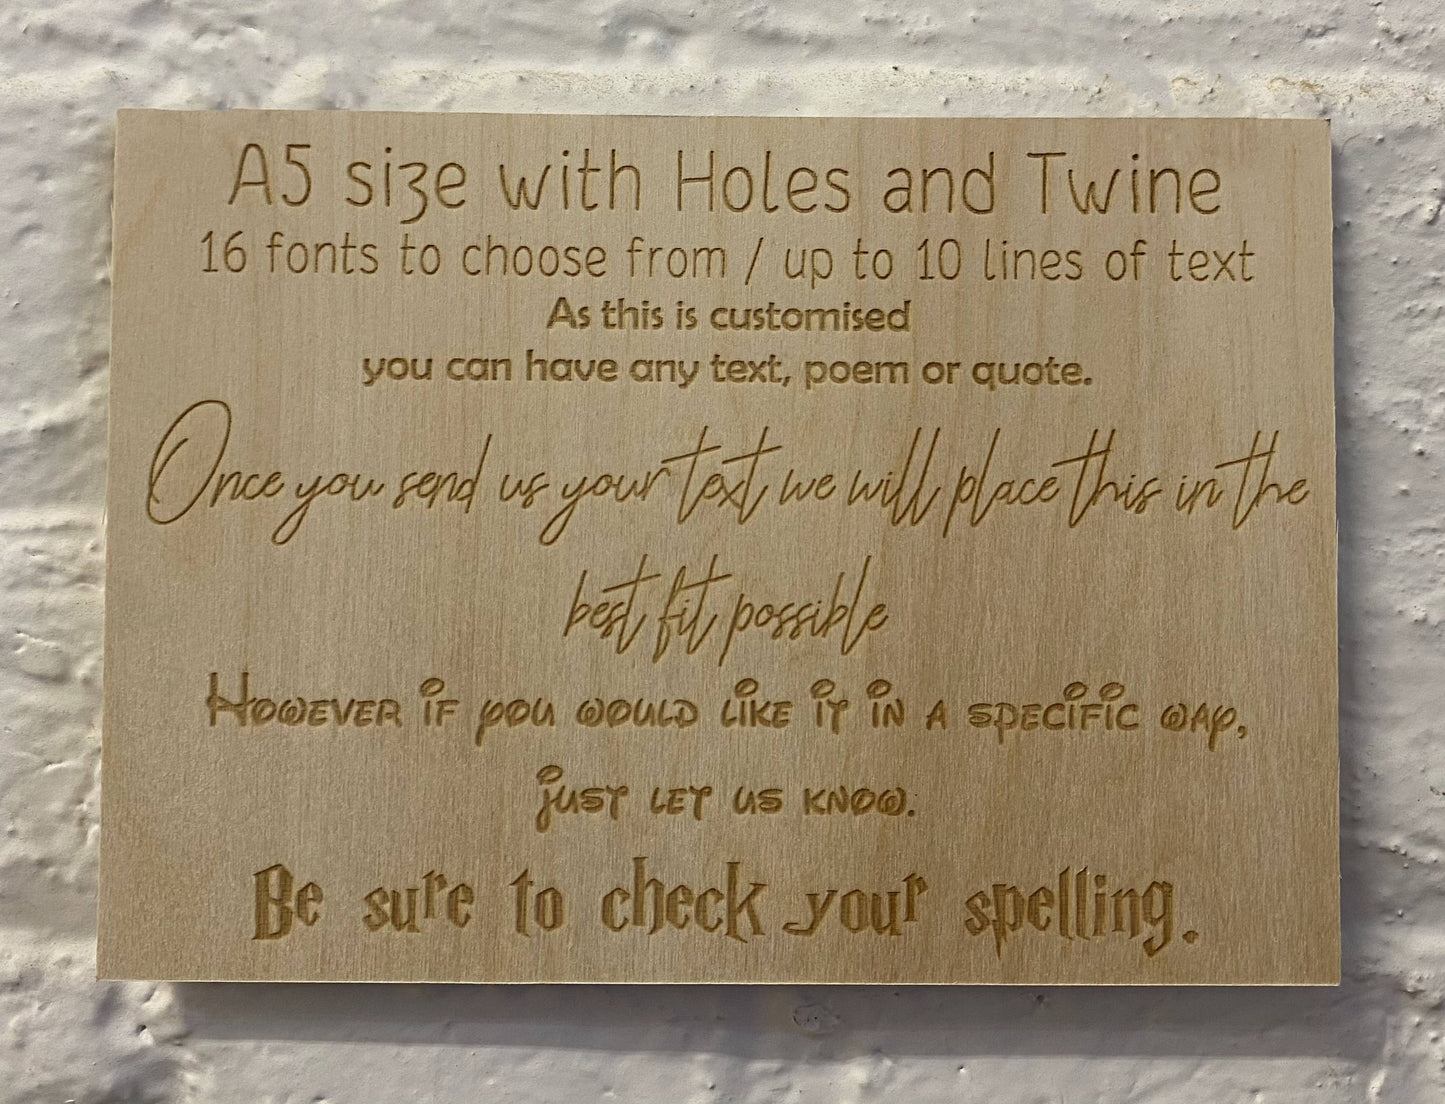 A5 size with Holes and Twine
16 fonts to choose from / up to 10 lines of text
As this is customised
you can have any text, poem or quote.
Once you send us your text we will place this in the
best fit possible
However if you would like it in a specific way,
just let us know.
Be sure to check your spelling.